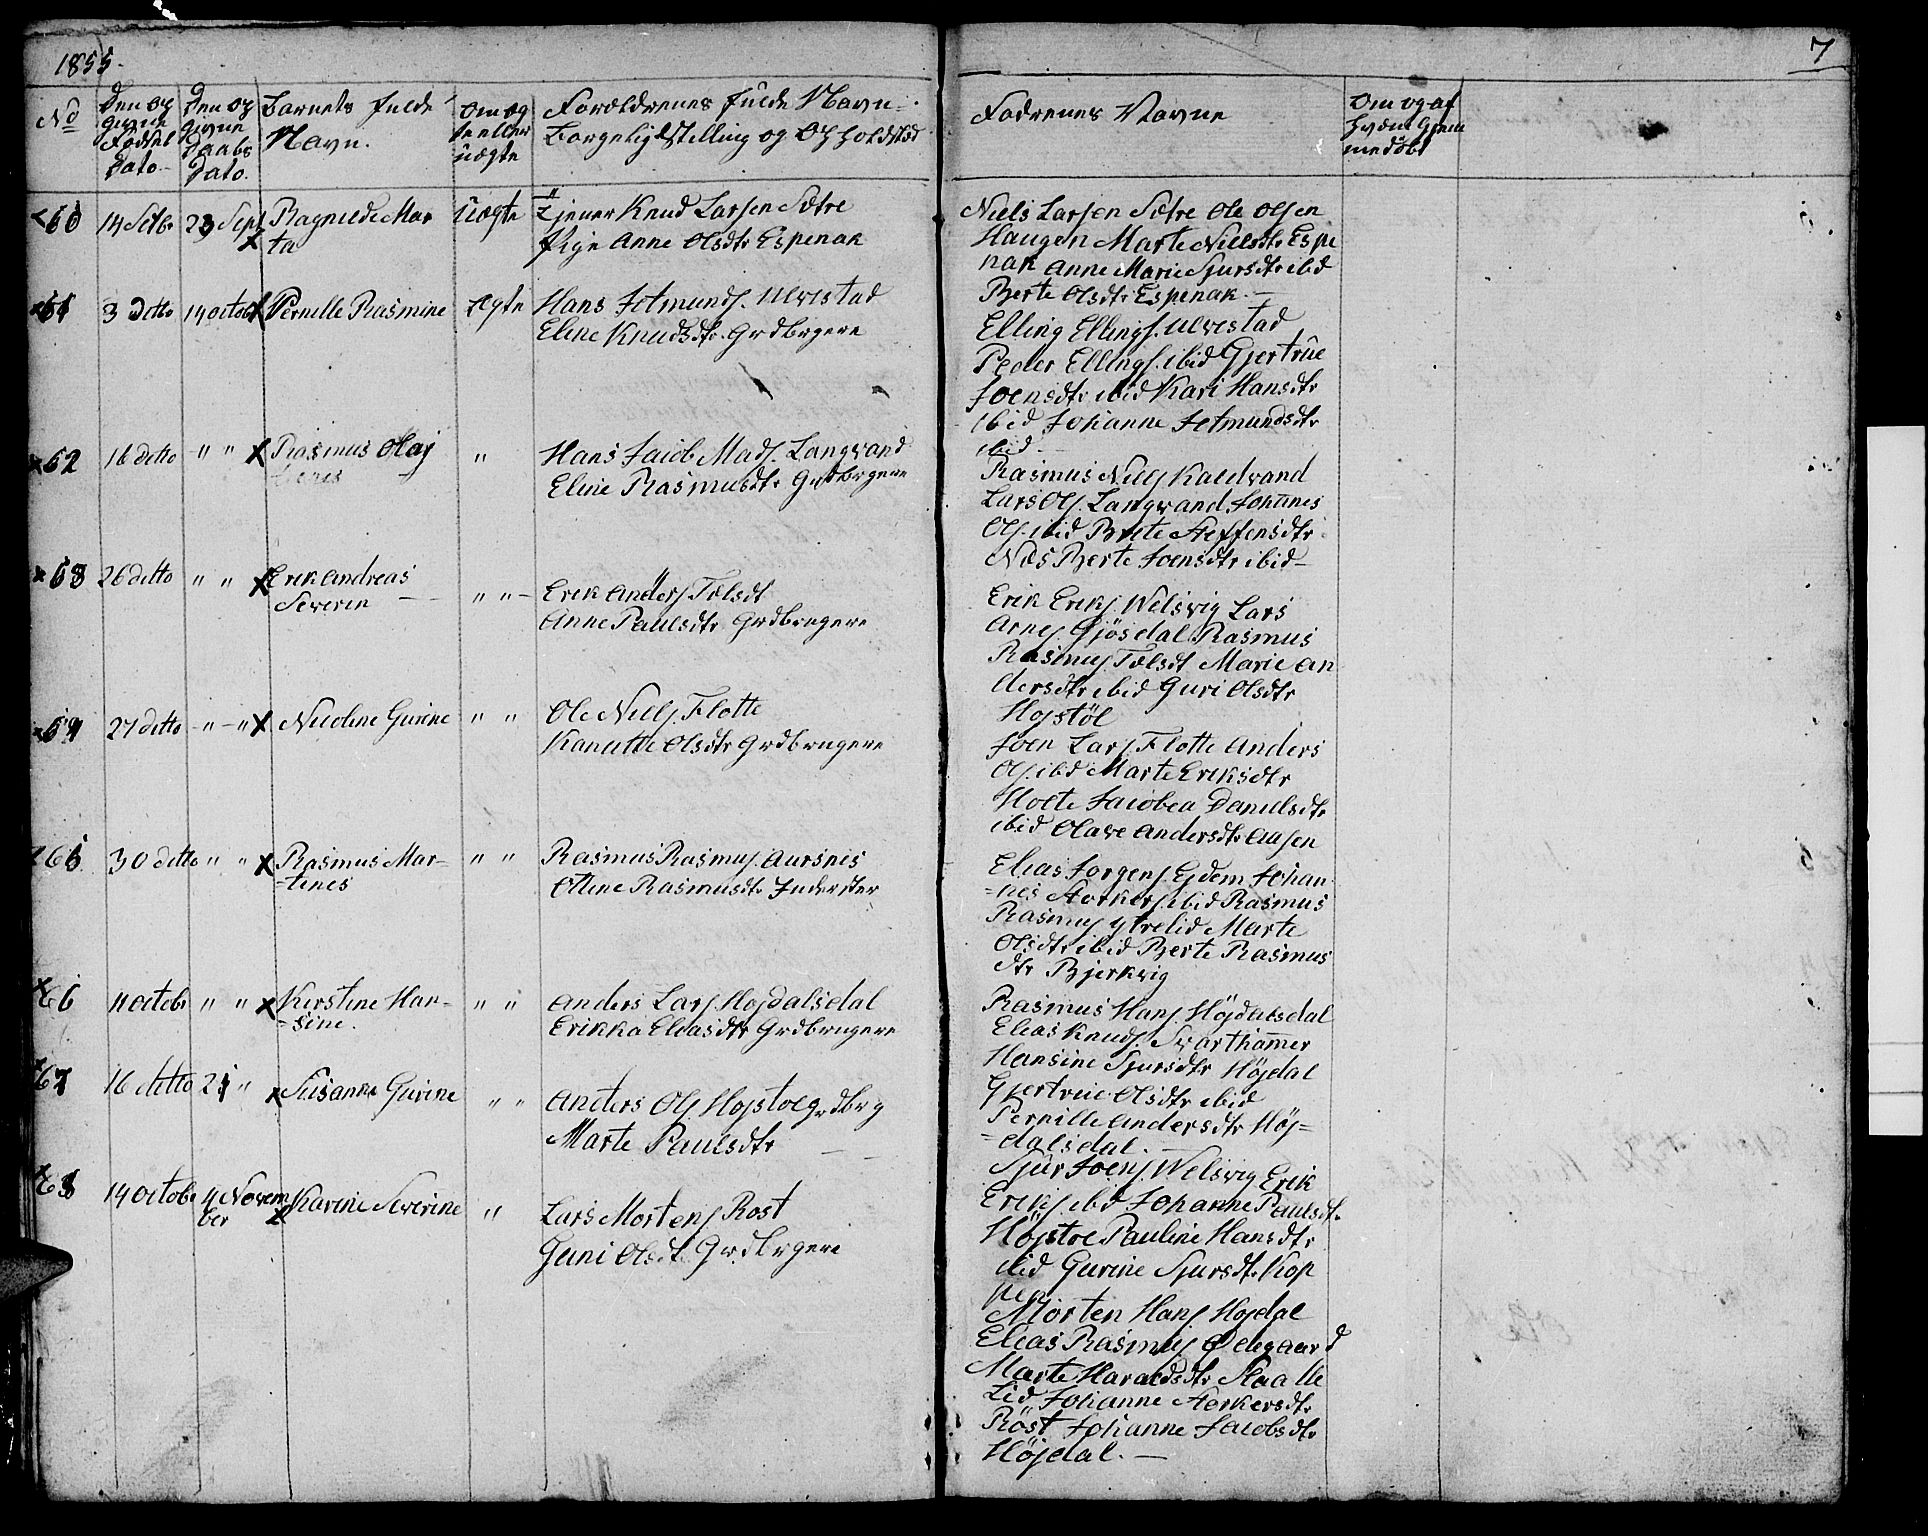 1855.
7
No
Den op
givne
Födsel
Dato
Den op
givne
Daabs
Dato.
Barnets fulde
Navn.
Om æg
te eller
uægte
Forældrenes fulde Navn
Borgerlig Stilling og Opholdsted
Fadrenes Navne
Om og af
hvem hjem
medöbt
60 14 Setbr 23 Sept Ragnilde Mar
ta
Uægte
Tjener Knud Larsen Sætre
Pige Anne Olsdtr Espenak
Niels Larsen Sætre Ole Olsen
Haugen Marte Nielsdtr Espe
nak Anne Marie Sjursdtr ibid
Berte Olsdtr Espenak. —
61 3 Ditto 14 octobr Pernille Rasmine ægte
Hans Jetmunds. Ulvestad
Eline Knudsdtr. Grdbrgere
Elling Ellings. Ulvestad
Peder Ellings. ibid Gjertrue
Joensdtr ibid Kari Hansdtr
ibid Johanne Jetmundsdtr
ibid —
62 16 ditto " " Rasmus Olaj "
Hans Jacob Mads. Langvand
Eline Rasmusdtr Grdbrgere
Rasmus Niels Kaldvand
Lars Ols. Langvand Johannes
Ols. ibid Brite Steffensdtr
Næs Berte Joensdtr ibid —
63 26 ditto " " Erik Andreas
Severin — " " —
Erik Anders Tolsdt
Anne Paulsdtr Grdbrugere
Erik Eriks Welsvig Lars
Arnes Gjösdal Rasmus
Rasmus Tolsdt Marie An
dersdtr ibid Guri Olsdtr
Hojstöl
64 27 ditto " — " Nicoline Gurine " "
Ole Niels. Flotte
Kanutte Olsdtr Grdbrugere
Joen Lars Flotte Anders
Ols ibd Marte Eriksdtr
Holte Jacobea Danielsdtr
ibid Olave Andersdtr Aasen
65 30 ditto " " Rasmus Mar-
-tines " "
Rasmus Rasmus. Aursnis
Oline Rasmusdtr Inderster
Elias Jorgens Ejdem Johan-
=nes Storkers. ibid Rasmus
Rasmus ytrelid Marte
Olsdtr ibid Berte Rasmus
dtr Bjerkvig
66 11 octobr " " Kirstine Han-
-sine. " "
Anders Lars Hojdalsdal
Erikka Eliasdtr Grdbrugere
Rasmus Hans Höjdalsdal
Elias Knuds. Svarthammer
Hansine Sjursdtr Höjdal
Gjertrue Olsdtr ibid
Pernille Andersdtr Höj=
=dalsdal. —
67 16 ditto 21 " Susanne Gurine " "
Anders Ols Hojstoe grdbrg
Marte Paulsdtr — —
Sjur Joens. Welsvig Erik
Eriks ibd Johanne Paulsdtr
Höjstoe Pauline Hansdtr
ibid Gurine Sjursdtr Kop
pen
68 14 octobr 4 Novem
ber Karine Severine "
Lars Mortens Rost
Guni Olsdt Grdbrgere
Morten Hans Hojdal
Elias Rasmus Ødegaard
Marte Haraldsdtr Staalle
Lid Johanne Storkersdtr
Röst Johanne Jacobsdtr
Höjdal. —